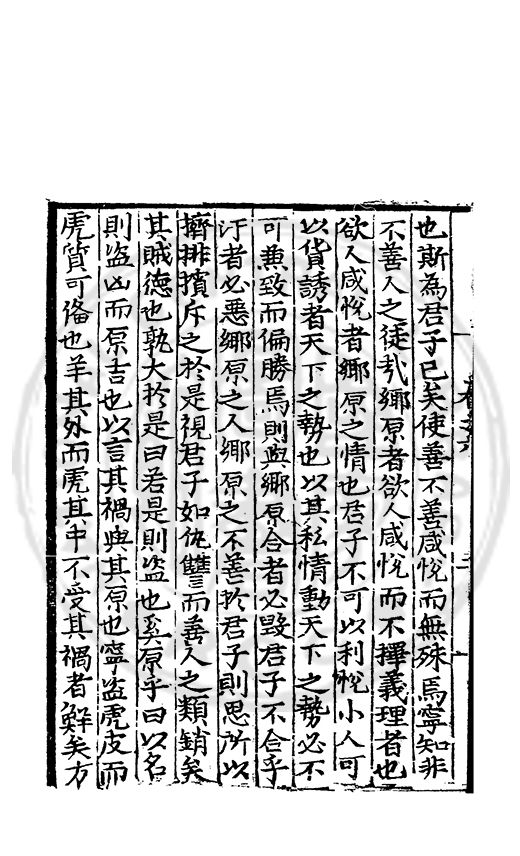 也斯為君子已矣使善不善咸悅而無殊焉寧知非
不善人之徒㢤鄉原者欲人咸悅而不擇義理者也
欲人咸悅者鄉原之情也君子不可以利悅小人可
以貨誘者天下之勢也以其私情動天下之勢必不
可兼致而偏勝焉則與鄉原合者必毀君子不合乎
汙者必惡鄉原之人鄉原之不善於君子則思所以
擠排擯斥之於是視君子如仇讐而善人之類銷矣
其賊德也孰大於是曰若是則盜也奚原乎曰以名
則盜凶而原吉也以言其禍與其原也寧盜虎皮而
虎質可俻也羊其外而虎其中不受其禍者鮮矣方